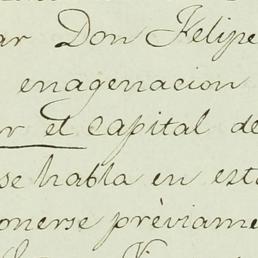 ar Don Felipe
enagenacion
r el capital de
se habla en est
onerse prèviame